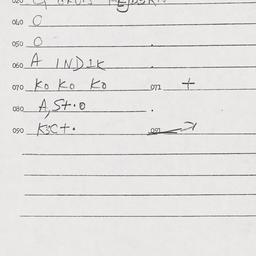 040 O
050 O
060 A INDIK
070 Ko Ko Ko 071 +
080 A, St. o
090 K3Ct. 091